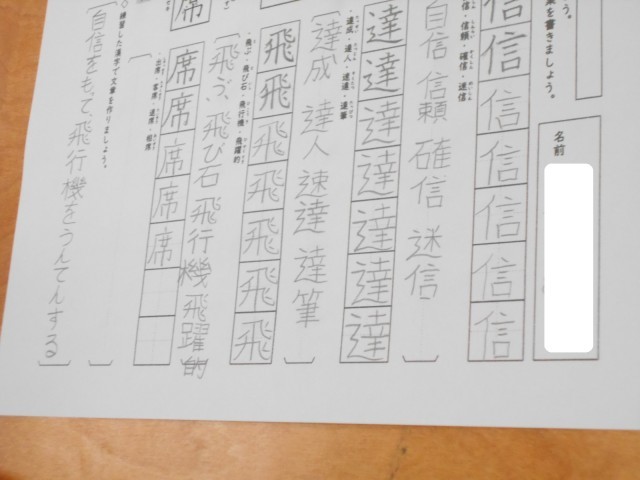 葉を書きましょう。
名前
信信信信信信信
信・信頼・確信・迷信
自信 信頼 確信 迷信
達達達達達達達
達成・達人・速達・達筆
達成 達人 速達 達筆
飛飛飛飛飛飛飛
飛ぶ・飛び石・飛行機・飛躍的
飛ぶ、飛び石 飛行機 飛躍的
席
席席席席席
出席・客席・退席・相席
◇練習した漢字で文章を作りましょう。
自信をもって、飛行機をうんてんする